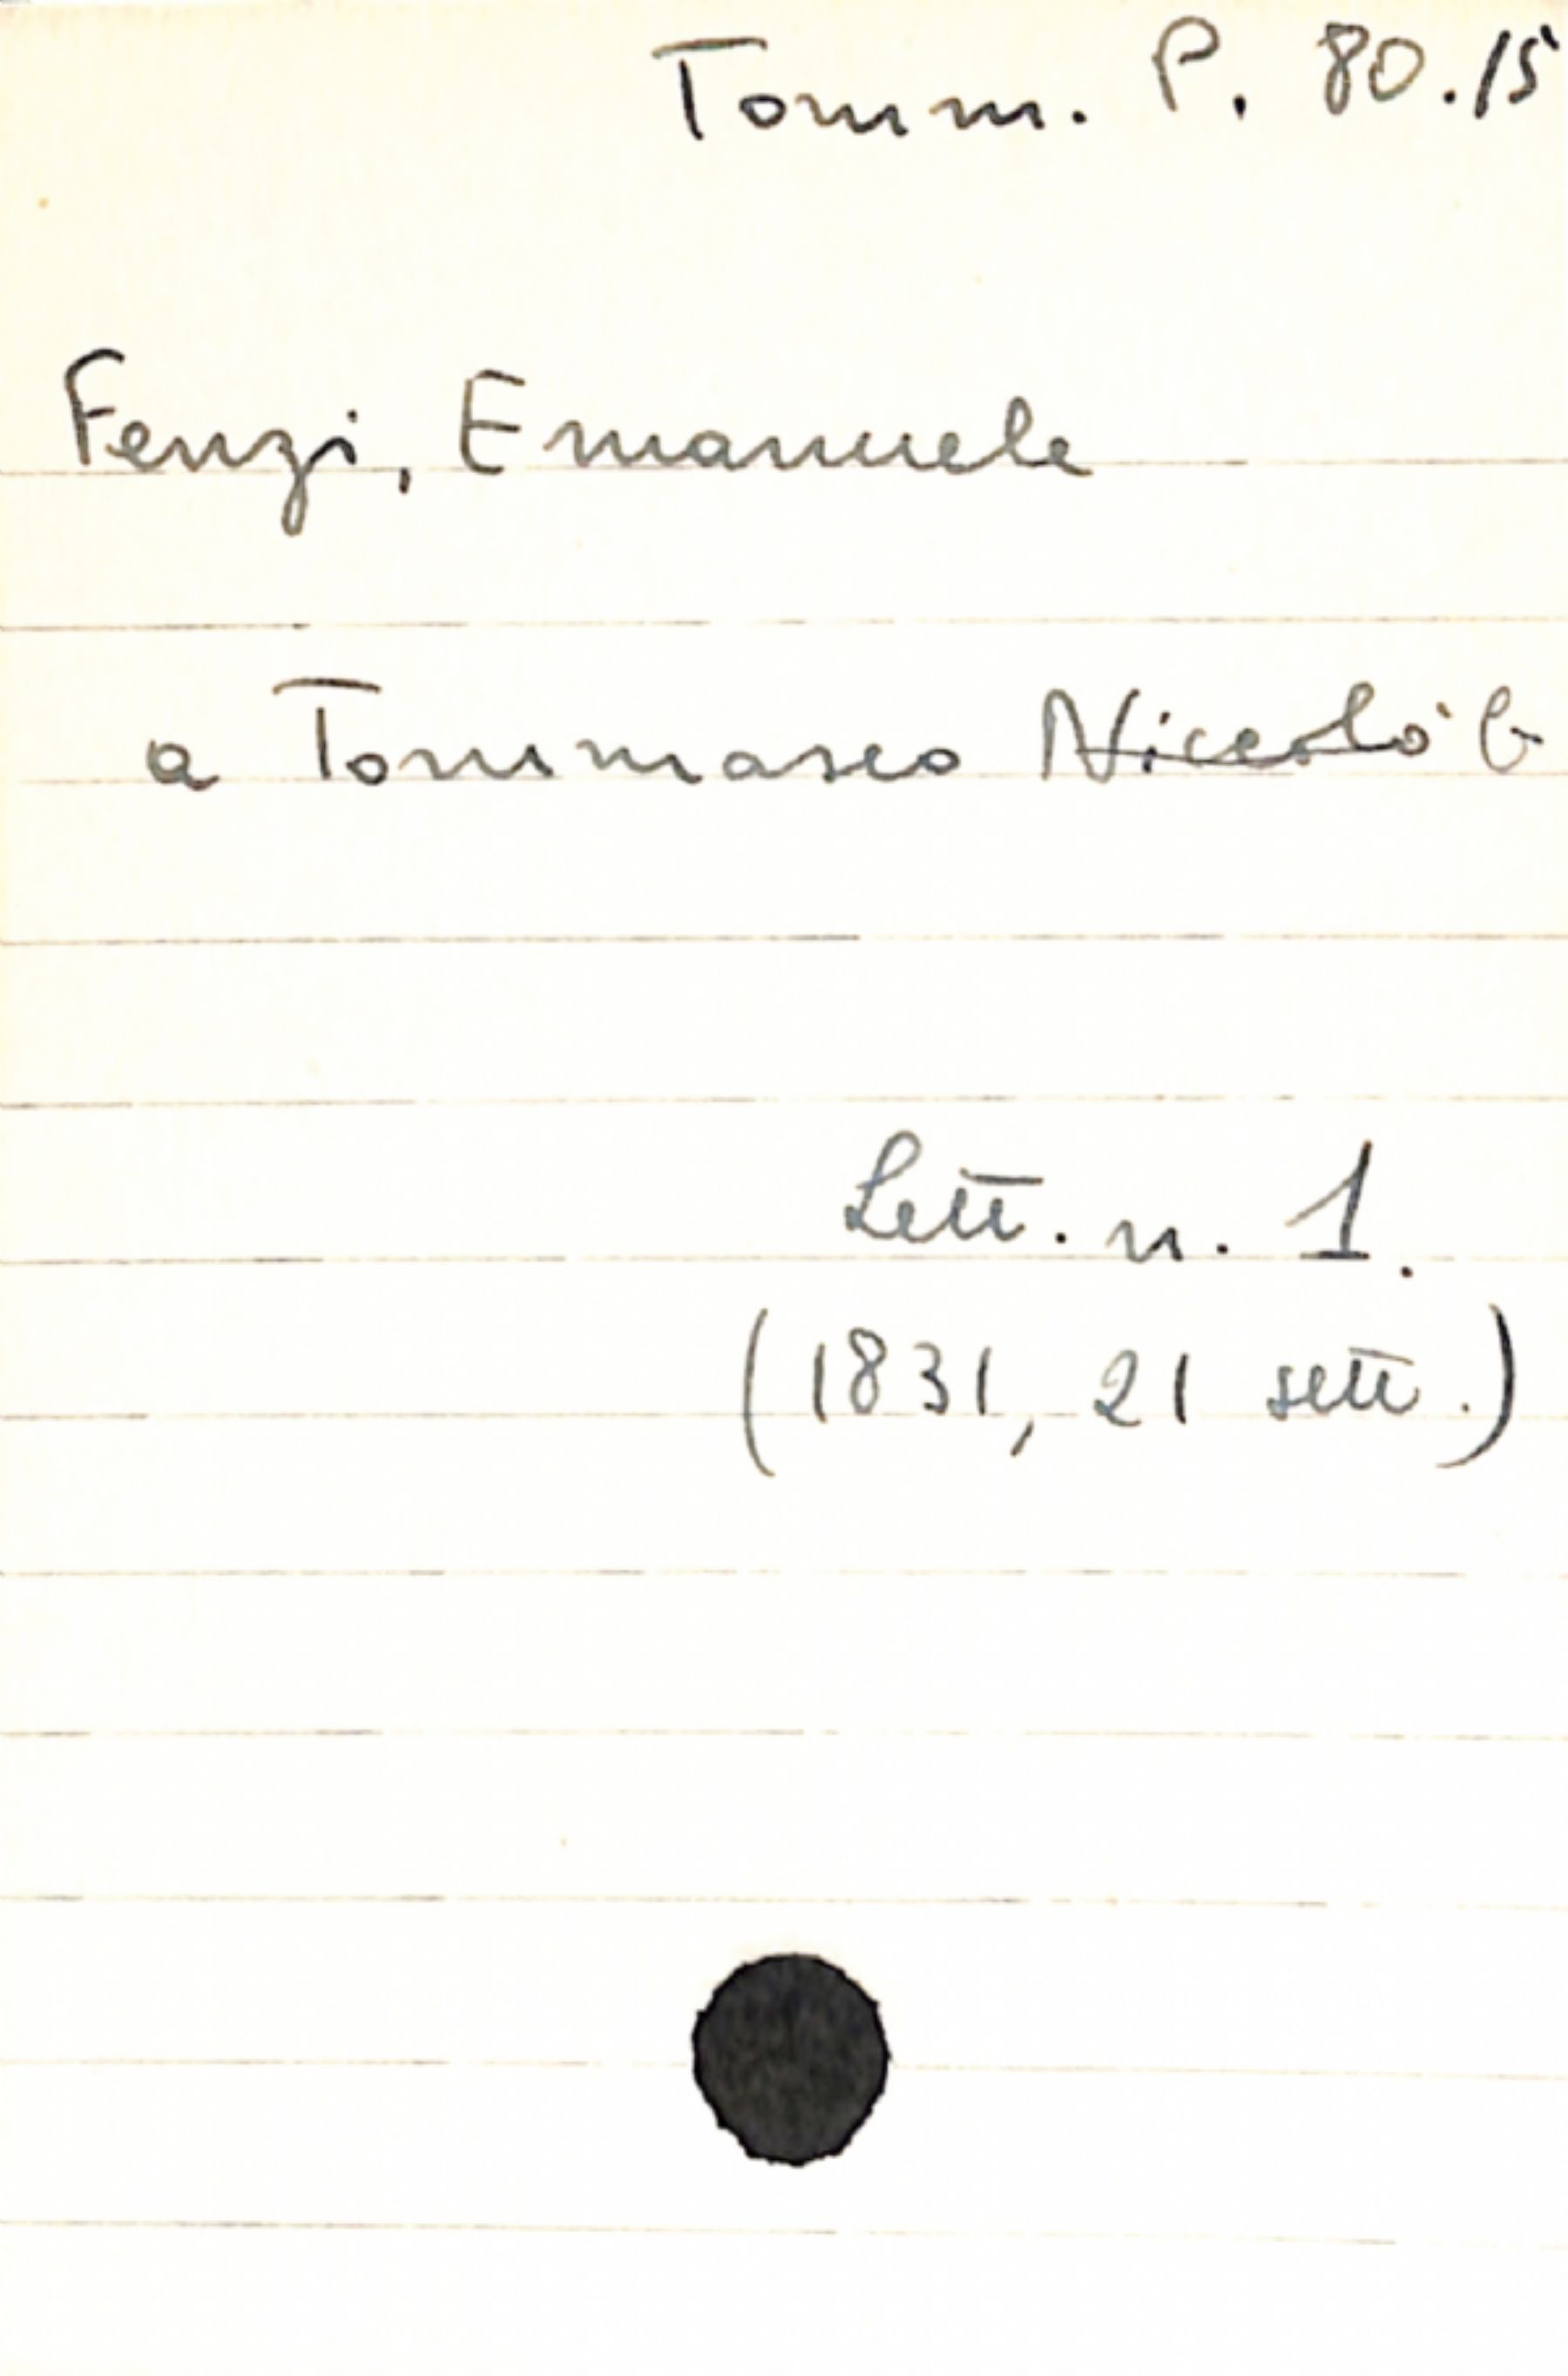 Tomm. P. 80.15
Fenzi, Emanuele
a Tommaseo Niccolò G
Lett. n. 1.
(1831, 21 sett.)